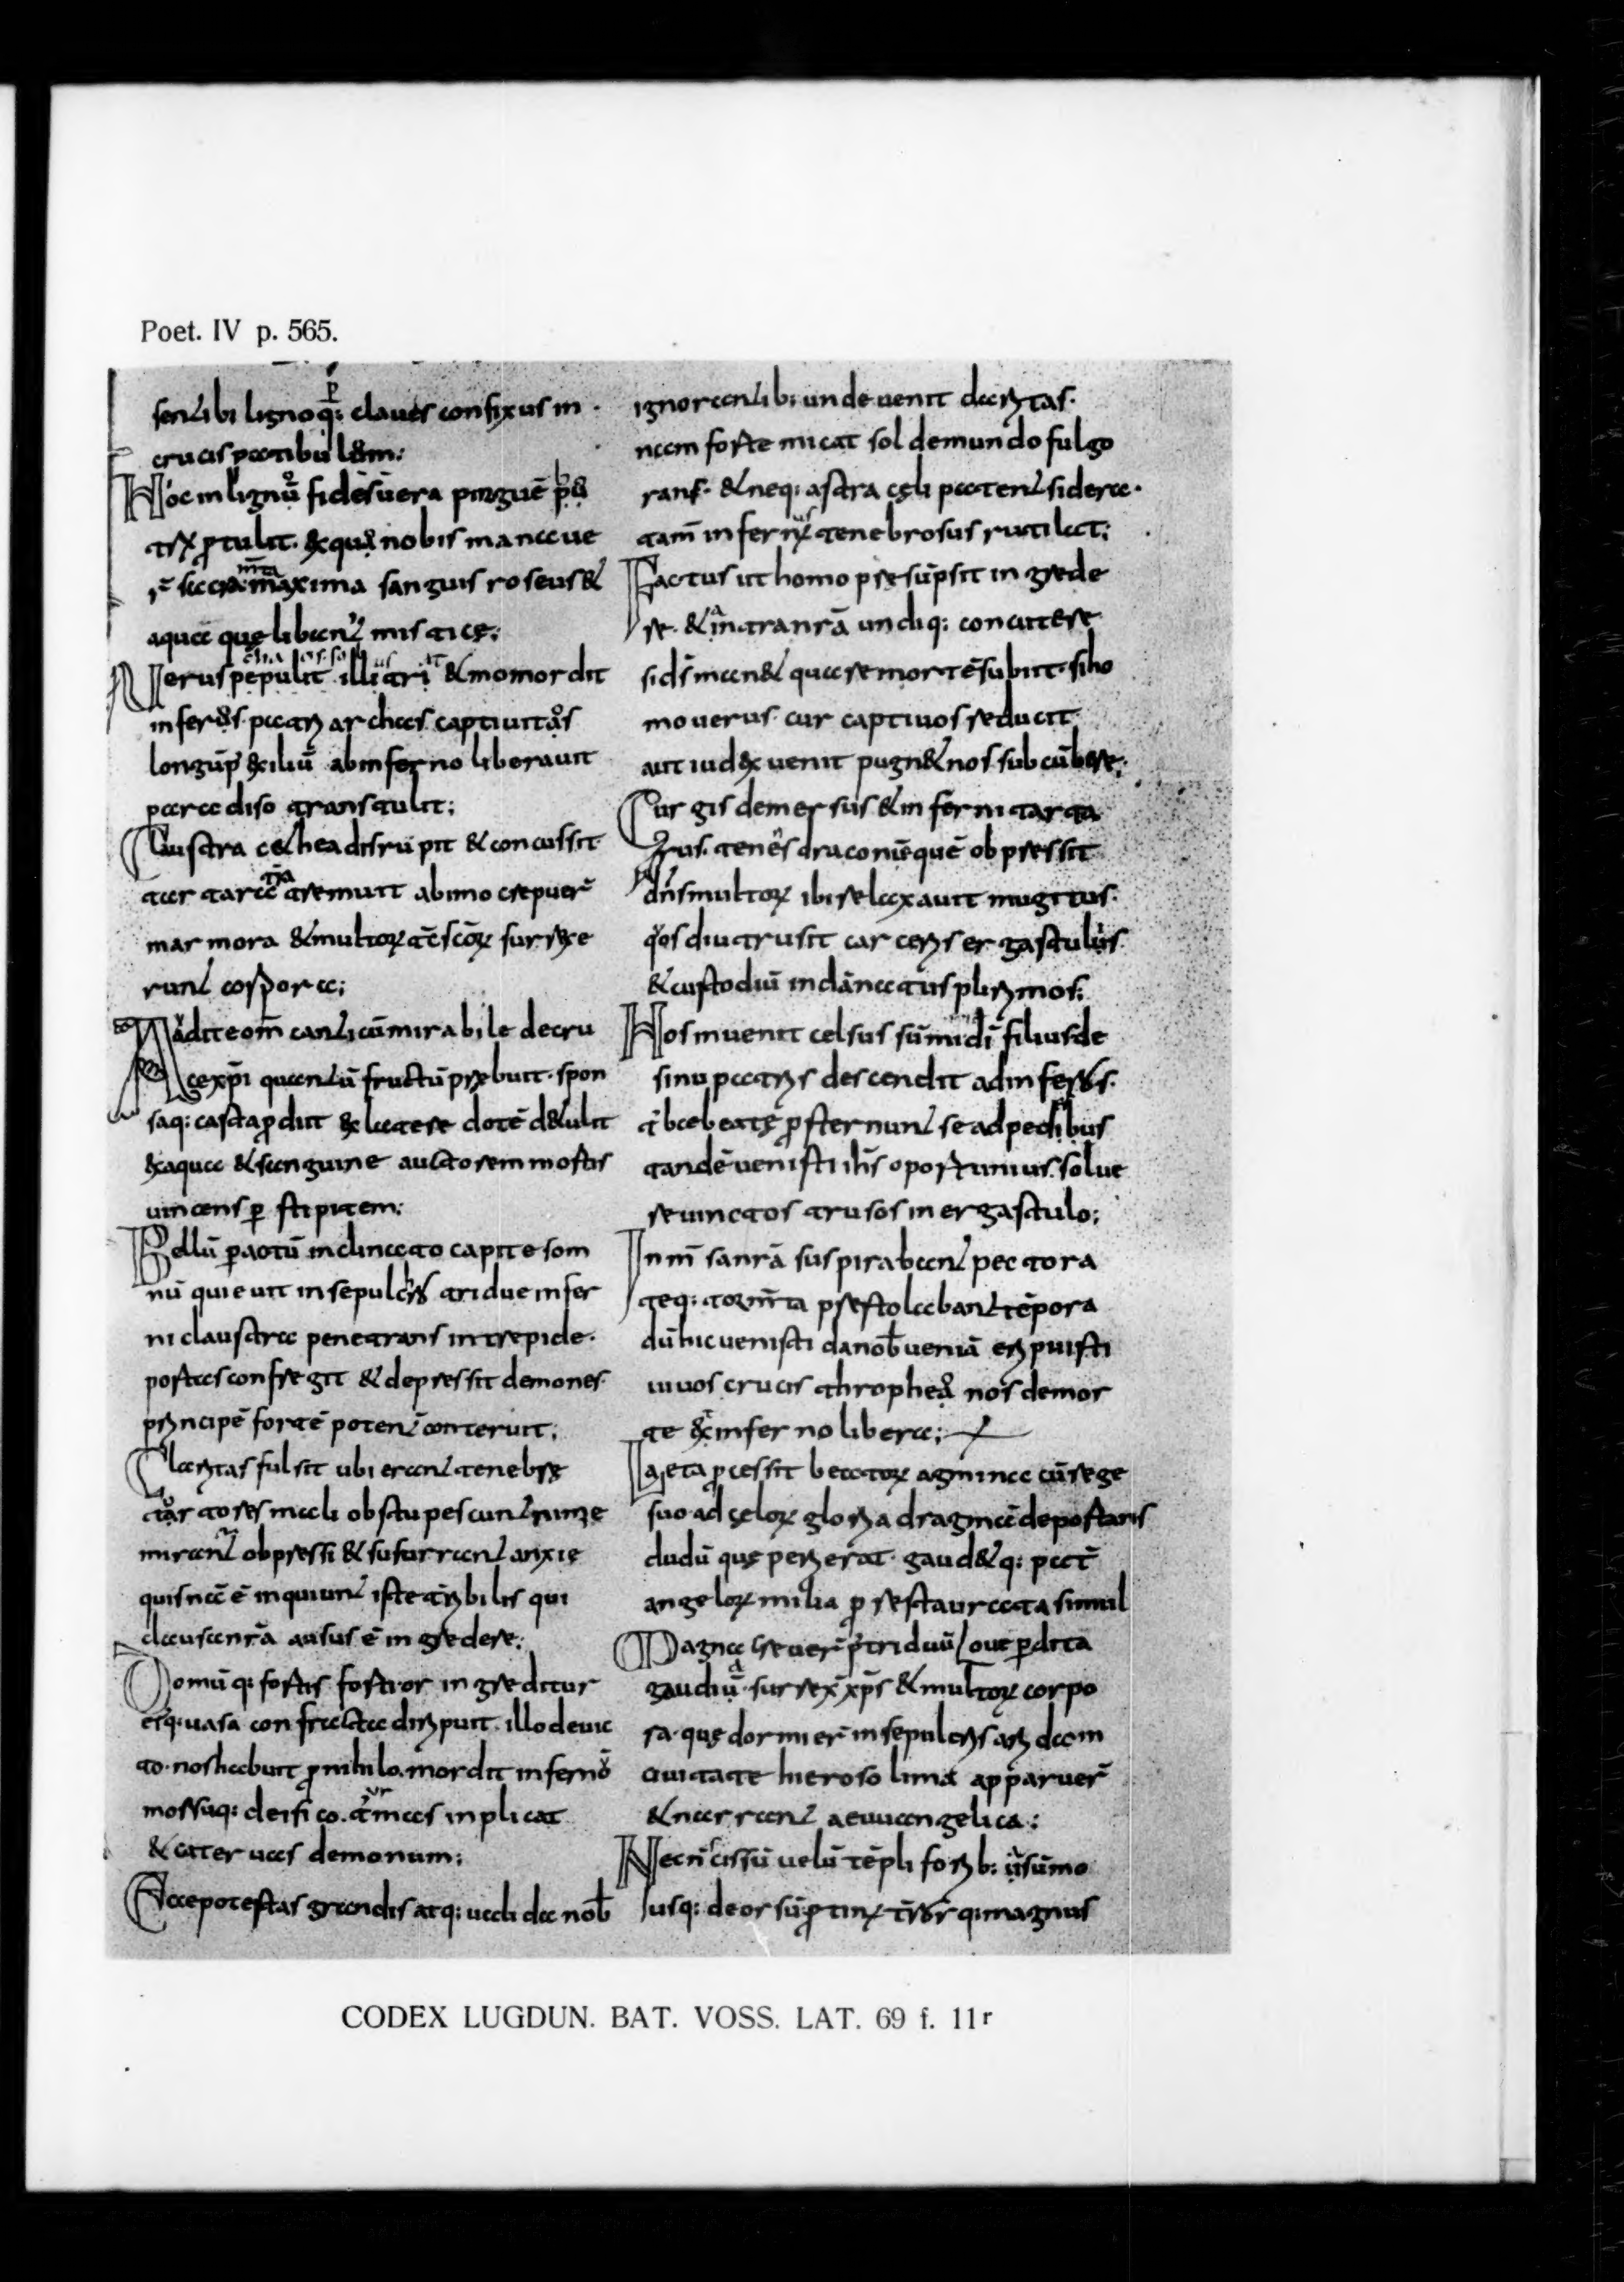 Poet. IV p. 565.
sent ibi lignoq: claues confixus in
crucis patibulum;
Hoc in lignū fides uera pinguē
protulit. & quā nobis manaue
r̄ sacra maxima sanguis roseus &
aquae quę libant misticę;
pepulit & momordit
inferos. patriarchas captiuitas
longūp exiliū ab inferno liberauit
paradiso transtulit;
Claustra cethea disrupit & concussit
tartara tremuit ab imo crepuer̄
marmora & multorꝝ surrexe
runt corpora;
Audite om̄ canticū mirabile de cru
ce xp̄i quantū fructū prębuit. spon
saq: casta ꝓdiit ex latere dotē detulit
ex aqua & sanguine auctorem mortis
uincens ꝑ stipitem;
Bellū ꝑactū inclinato capite som
nū quieuit in sepulcro triduo infer
ni claustra penetrans intrepide.
portas confregit & depressit demones.
principē fortē potent conteruit;
Claritas fulsit ubi erant tenebrę
tortores mali obstupescunt
mirant obpressi & susurrant anxię
quis nā ē inquiunt iste terribilis qui
claustra nr̄a ausus ē ingredere;
Domūq: fortis fortior ingreditur
eiq: uasa confracta diripuit. illo deuic
to. nos habuit ꝓ nihilo. mordit infernō
morsuq: deifico. inplicat
& cateruas demonum;
Ecce potestas grandis atq: ualida nob̄
ignorantib: unde uenit claritas.
nam forte micat sol de mundo fulgo
rans. & neq: astra cęli patent sidera.
tam̄ infernus tenebrosus rutilat;
Factus ut homo pręsūpsit ingrede
re. & intra nr̄ā undiq: concutere
si d̄s manet quare mortē subiit. si ho
mo uerus cur captiuos reducit
aut iudex uenit pugnet nos subcūbere;
Surgis demersus & inferni tarta
rus. tenens draconēquē obpressit
dn̄s multorꝝ ibi relaxauit mugitus.
quos diu trusit carceris ergastulis
& custodiū in dānatus plurimos;
Hos inuenit celsus sūmi di filius de
sinu patris descendit ad inferos.
turba beatę ꝓsternunt se ad pedibus
tandē uenisti ih̄s oportunius. solue
re uinctos trusos in ergastulo;
In nr̄a suspirabant pectora
teq: tormenta prestolabant tēpora
dū huc uenisti da nob̄ ueniā eripuisti
uiuos crucis thropheo nos de mor
te & inferno libera;
Laeta ꝓcessit beatorꝝ agmina cū rege
suo. ad cęlorꝝ gloria dragma deportans
dudū quę perierat. gaudetq: pat̄
angelorꝝ milia ꝓ restaurata simul
Magna triduū / oue ꝑdita
gaudiū. surrex̄ xp̄s & multorꝝ corpo
ra. quę dormier̄ in sepulcris
ciuitate hierosolima apparuer̄
& narrant aeuuangelica;
Necn̄ cissū uelū tēpli forib: sūmo
usq: deorsū ꝓtinꝰ q: magnus
CODEX LUGDUN. BAT. VOSS. LAT. 69 f. 11r